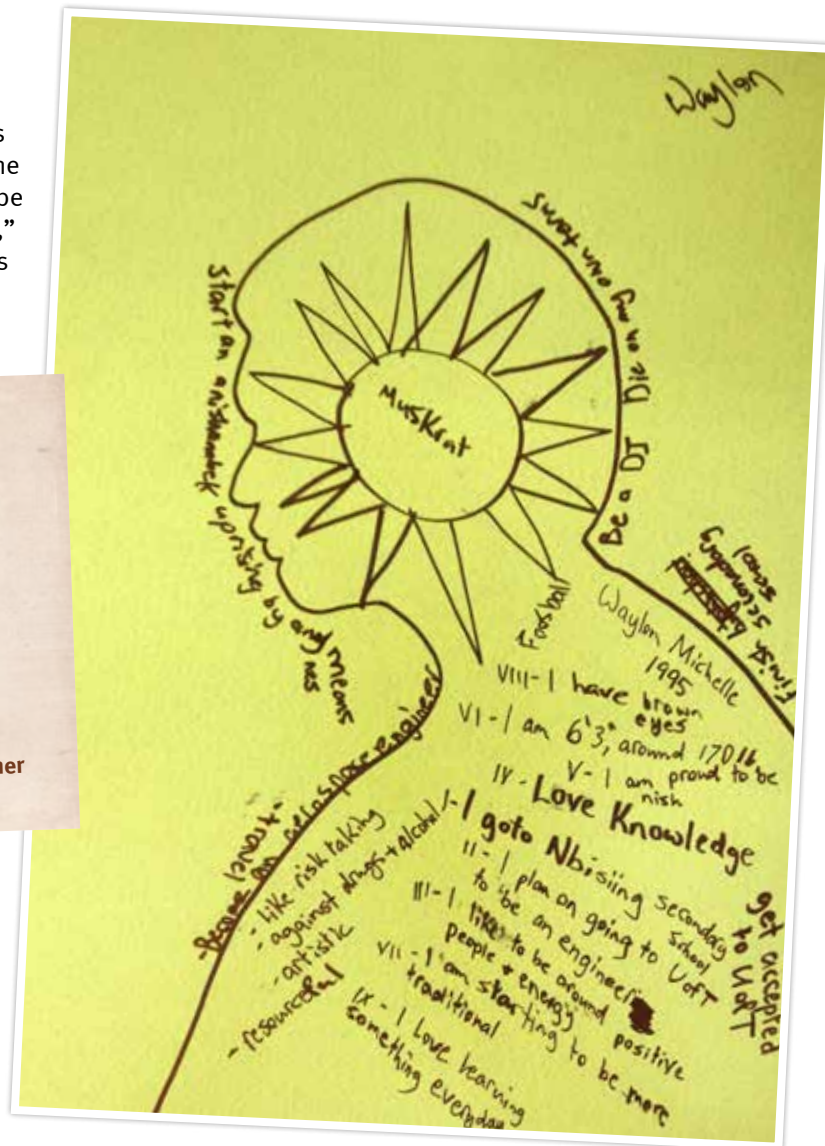 s
ne
pe
,”
s
ner
Waylon
Start an uprising by any means nes
Muskrat
Be a DJ
Die on my own terms
finish
secondary
scool
Foosball
Waylon Michelle
1995
VIII - I have brown
eyes
VI - I am 6'3", around 170 lb
V - I am proud to be
nish
IV - Love Knowledge
I - I goto Nbisiing secondary
School
II - I plan on going to UofT
to be an engineer
III - I like to be around positive
people + energy
VII - I am starting to be more
traditional
IX - I Love learning
something everyday
get accepted
to UofT
- Become an aerospace engineer
- travel -
- like risk taking
- against drugs + alcohol
- artistic
- resourceful